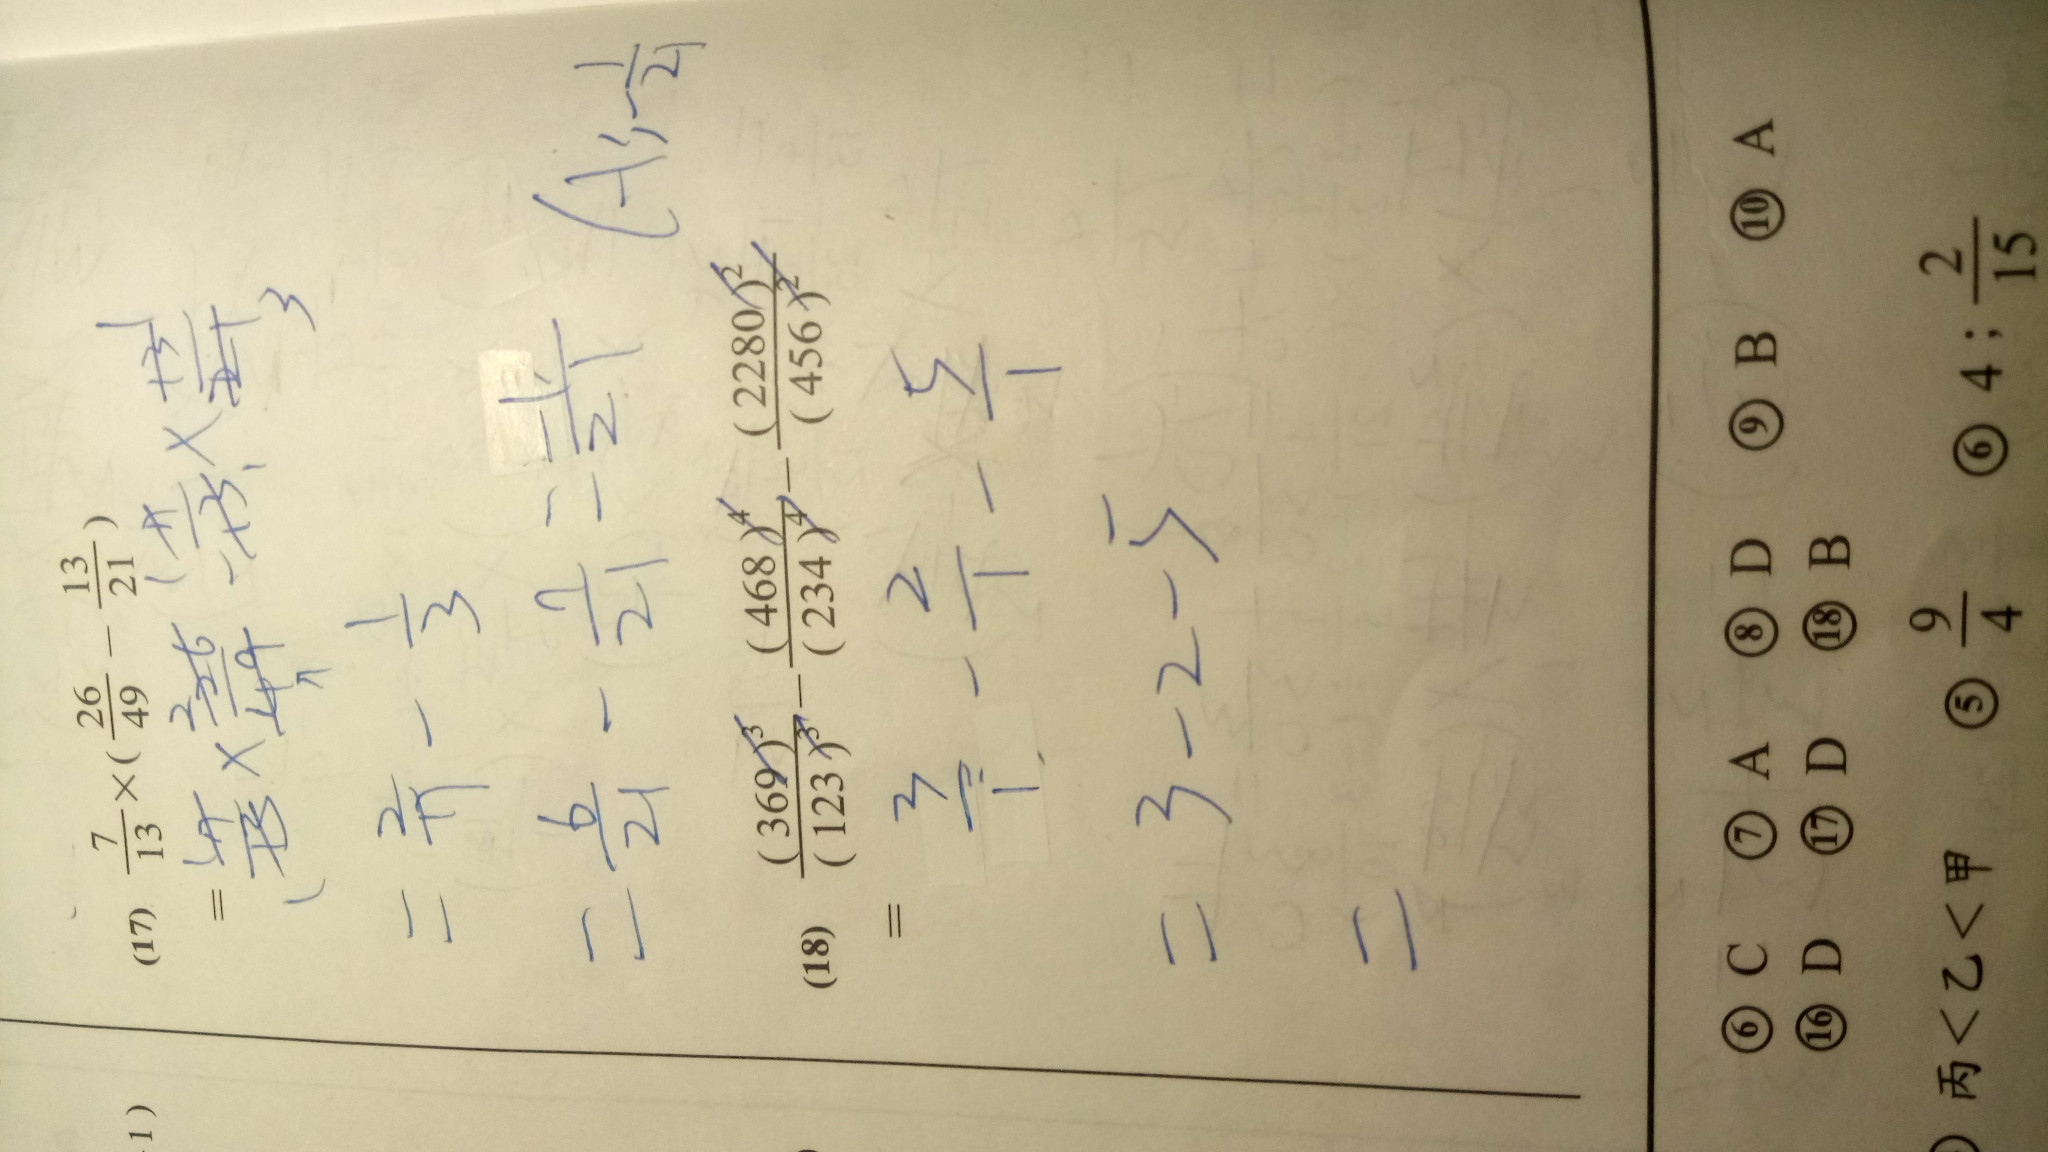 1 )
(17) 7/13 × ( 26/49 − 13/21 )
= 7/13 × 26/49 − ( 7/13 × 13/21 )
= 2/7 − 1/3
= 6/21 − 7/21 = −1/21
−1/21
(18) (369)³/(123)³ − (468)⁴/(234)⁴ − (2280)²/(456)²
= 3/1 − 2/1 − 5/1
= 3 − 2 − 5
=
⑥ C ⑦ A ⑧ D ⑨ B ⑩ A
⑯ D ⑰ D ⑱ B
丙 < 乙 < 甲 ⑤ 9/4 ⑥ 4 ; 2/15